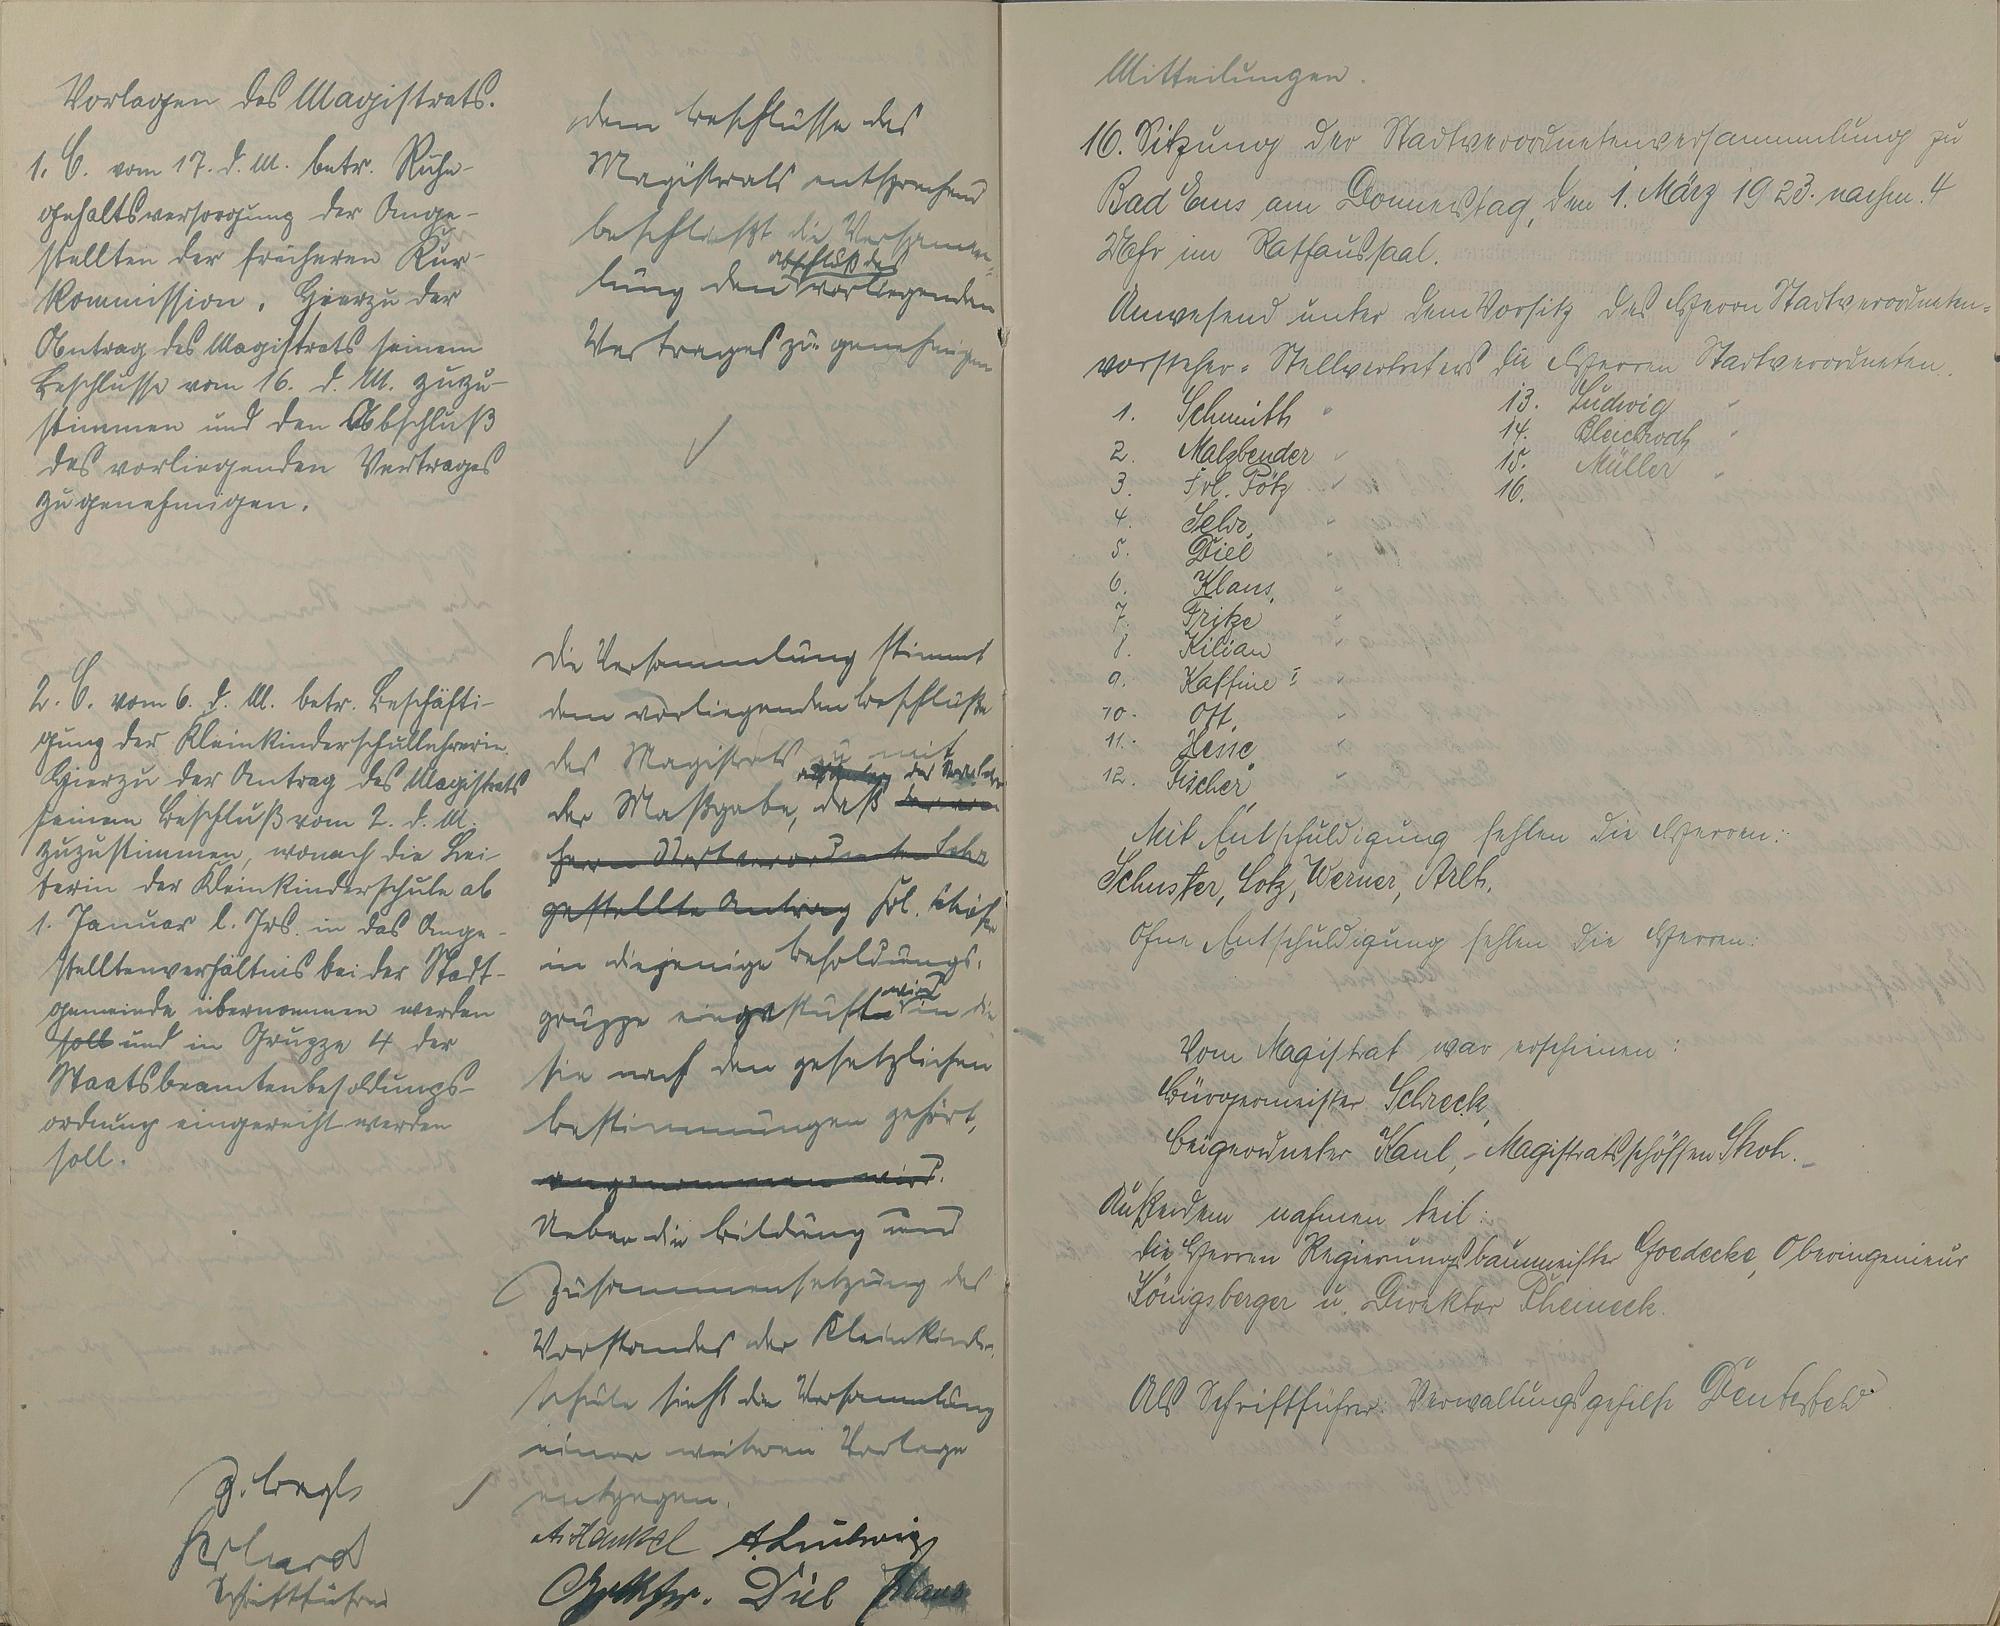 Vorlagen des Magistrats.
1. C. vom 17. d. M. betr. Ruhe-
gehaltsversorgung der Ange-
stellten der früheren Kur-
kommission. Hierzu der
Antrag des Magistrats seinem
Beschlusse vom 16. d. M. zuzu-
stimmen und den Abschluß
des vorliegenden Vertrages
zu genehmigen.
2. C. vom 6. d. M. betr. Beschäfti-
gung der Kleinkinderschullehrerin.
Hierzu der Antrag des Magistrats
seinem Beschluß vom 2. d. M.
zuzustimmen, wonach die Lei-
terin der Kleinkinderschule ab
1. Januar l. Jrs. in das Ange-
stelltenverhältnis bei der Stadt-
gemeinde übernommen werden
soll und in Gruppe 4 der
Staatsbeamtenbesoldungs-
ordnung eingereiht werden
soll.
Gerhard
Schriftführer
dem Beschlusse des
Magistrats entsprechend
beschließt die Versamm-
lung den Abschluß des vorliegenden
Vertrages zu genehmigen
Die Versammlung stimmt
dem vorliegenden Beschluße
des Magistrats zu mit
der Maßgabe, daß der von
Herrn Stadtverordneten Selw
gestellte Antrag Frl.
in diejenige Besoldungs-
gruppe eingestuft wird in die
sie nach den gesetzlichen
Bestimmungen gehört,
angenommen wird.
Ueber die Bildung und
Zusammensetzung des
Vorstandes der Kleinkinder-
schule sieht die Versammlung
einer weiteren Vorlage
entgegen.
A. Hankel A. Ludwig
Diel Klaus
Mitteilungen.
16. Sitzung der Stadtverordnetenversammlung zu
Bad Ems am Donnerstag, den 1. März 1923. nachm. 4
Uhr im Rathaussaal.
Anwesend unter dem Vorsitz des Herrn Stadtverordneten-
vorsteher-Stellvertreters die Herren Stadtverordneten.
1. Schmith "
2. Malzbender "
3. Frl. Pötz "
4. Selw "
5. Diel "
6. Klaus "
7. Fritze "
8. Kilian "
9. Kaffine I "
10. Ott "
11. Hesse "
12. Fischer "
13. Ludwig "
14. Bleichrodt "
15. Müller "
16.
Mit Entschuldigung fehlen die Herren:
Schuster, Lotz, Werner, Arlt.
Ohne Entschuldigung fehlen die Herren:
Vom Magistrat war erschienen:
Bürgermeister Schreck,
Beigeordneter Kaul, - Magistratsschöffen Skoh. -
Außerdem nahmen teil:
die Herren Regierungsbaumeister Goedecke, Oberingenieur
Königsberger u. Direktor Rheineck.
Als Schriftführer: Verwaltungsgehilfe